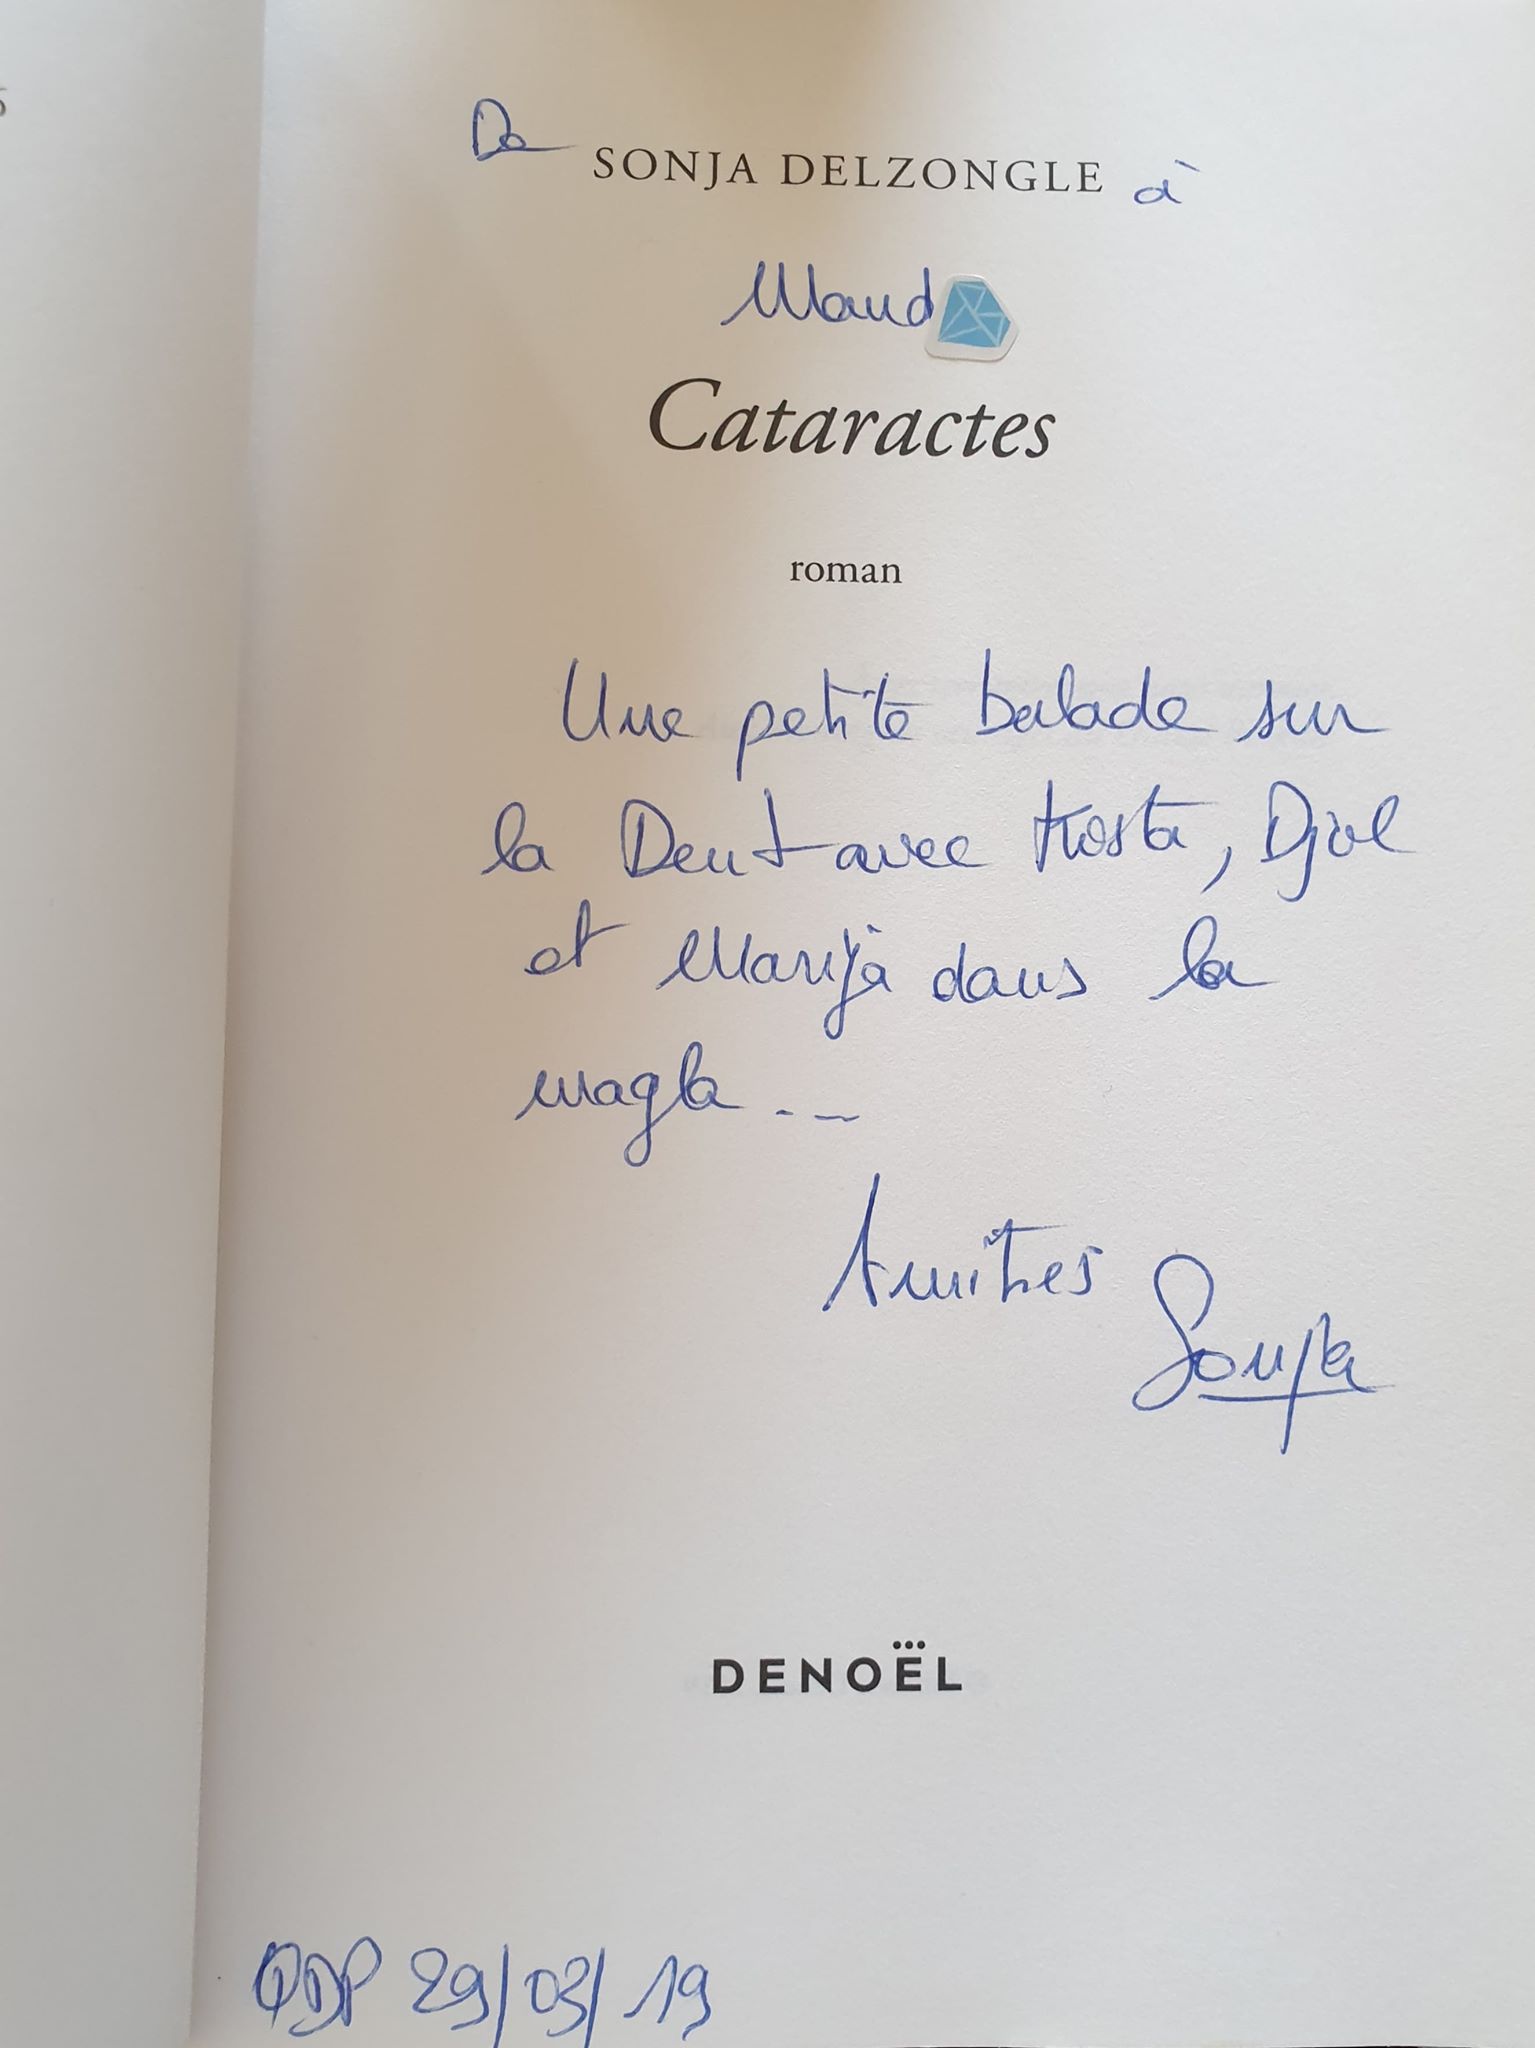 De SONJA DELZONGLE à
Maud
Cataractes
roman
Une petite balade sur
la Dent avec Kosta, Djol
et Marija dans la
magla...
Amitiés
Sonja
DENOËL
QDP 29/03/19